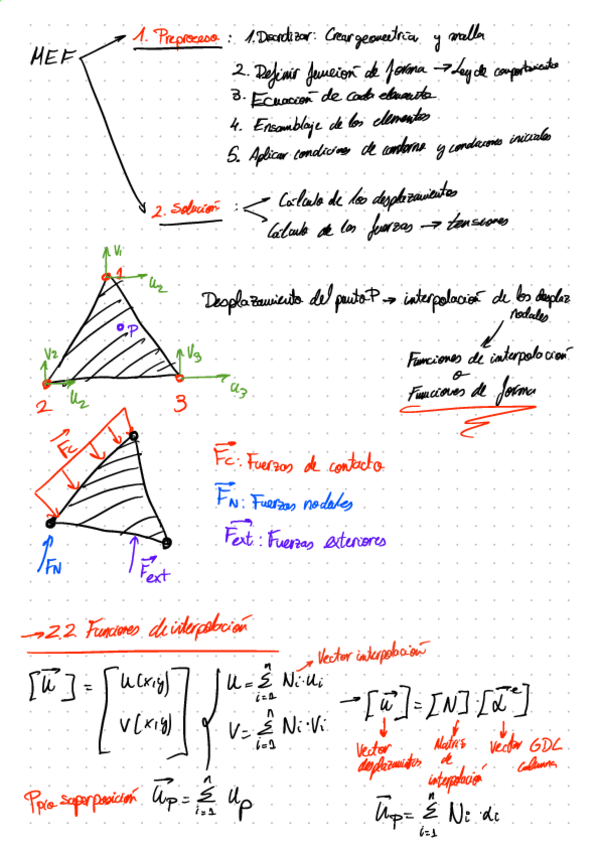 MEF
1. Preproceso : 1. Discretizar: Crear geometría y malla
2. Definir función de forma → Ley de comportamiento
3. Ecuación de cada elemento
4. Ensamblaje de los elementos
5. Aplicar condiciones de contorno y condiciones iniciales
2. Solución : Cálculo de los desplazamientos
Cálculo de las fuerzas → tensiones
V1
1
u2
P
V2
V3
u2
u3
2
3
Desplazamiento del punto P → interpolación de los desplaz
nodales
Funciones de interpolación
o
Funciones de forma
Fc
FN
Fext
Fc: Fuerzas de contacto
FN: Fuerzas nodales
Fext: Fuerzas exteriores
→ 2.2 Funciones de interpolación
Vector interpolación
[u] = [u(x,y) v(x,y)]
u = Σ i=1 n Ni·ui
V = Σ i=1 n Ni·Vi
→ [u] = [N]·[d^e]
Vector desplazamientos
Matriz de interpolación
Vector GDL columna
Ppio superposición up = Σ i=1 n up
up = Σ i=1 n Ni·di